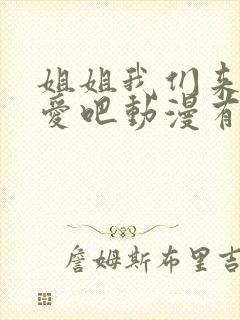 姐姐我们来
爱吧動漫有
詹姆斯布里吉